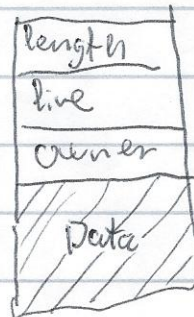 length
live
owner
Data